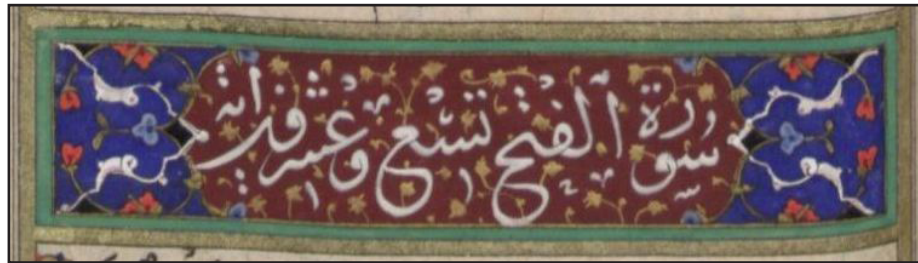 سورة الفتح تسع وعشرون اية